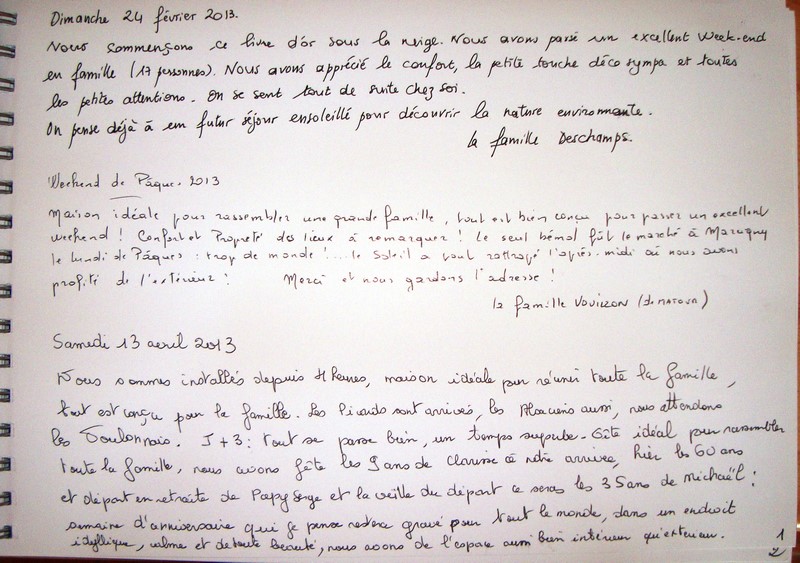 Dimanche 24 février 2013.
Nous commençons ce livre d'or sous la neige. Nous avons passé un excellent week-end
en famille (17 personnes). Nous avons apprécié le confort, la petite touche déco sympa et toutes
les petites attentions. On se sent tout de suite chez soi.
On pense déjà à un futur séjour ensoleillé pour découvrir la nature environnante.
la famille Deschamps.
Weekend de Pâques 2013
Maison idéale pour rassembler une grande famille, tout est bien conçu pour passer un excellent
weekend ! Confort et Propreté des lieux à remarquer ! Le seul bémol fût le marché à
le lundi de Pâques : trop de monde !... le Soleil a tout rattrapé l'après-midi où nous avons
profité de l'extérieur ! Merci et nous gardons l'adresse !
la famille (de MATOUR)
Samedi 13 avril 2013
Nous sommes installés depuis 4 heures, maison idéale pour réunir toute la famille,
tout est conçu pour la famille. Les Picards sont arrivés, les Alsaciens aussi, nous attendons
les Toulonnais. J+3 : tout se passe bien, un temps superbe. Gîte idéal pour rassembler
toute la famille, nous avons fêté les 9 ans de Clarisse à notre arrivée, hier les 60 ans
et départ en retraite de Papy Serge et la veille du départ ce seras les 35 ans de Michaël :
semaine d'anniversaire qui je pense restera gravé pour tout le monde, dans un endroit
idyllique, calme et de toute beauté, nous avons de l'espace aussi bien intérieur qu'extérieur.
1
2